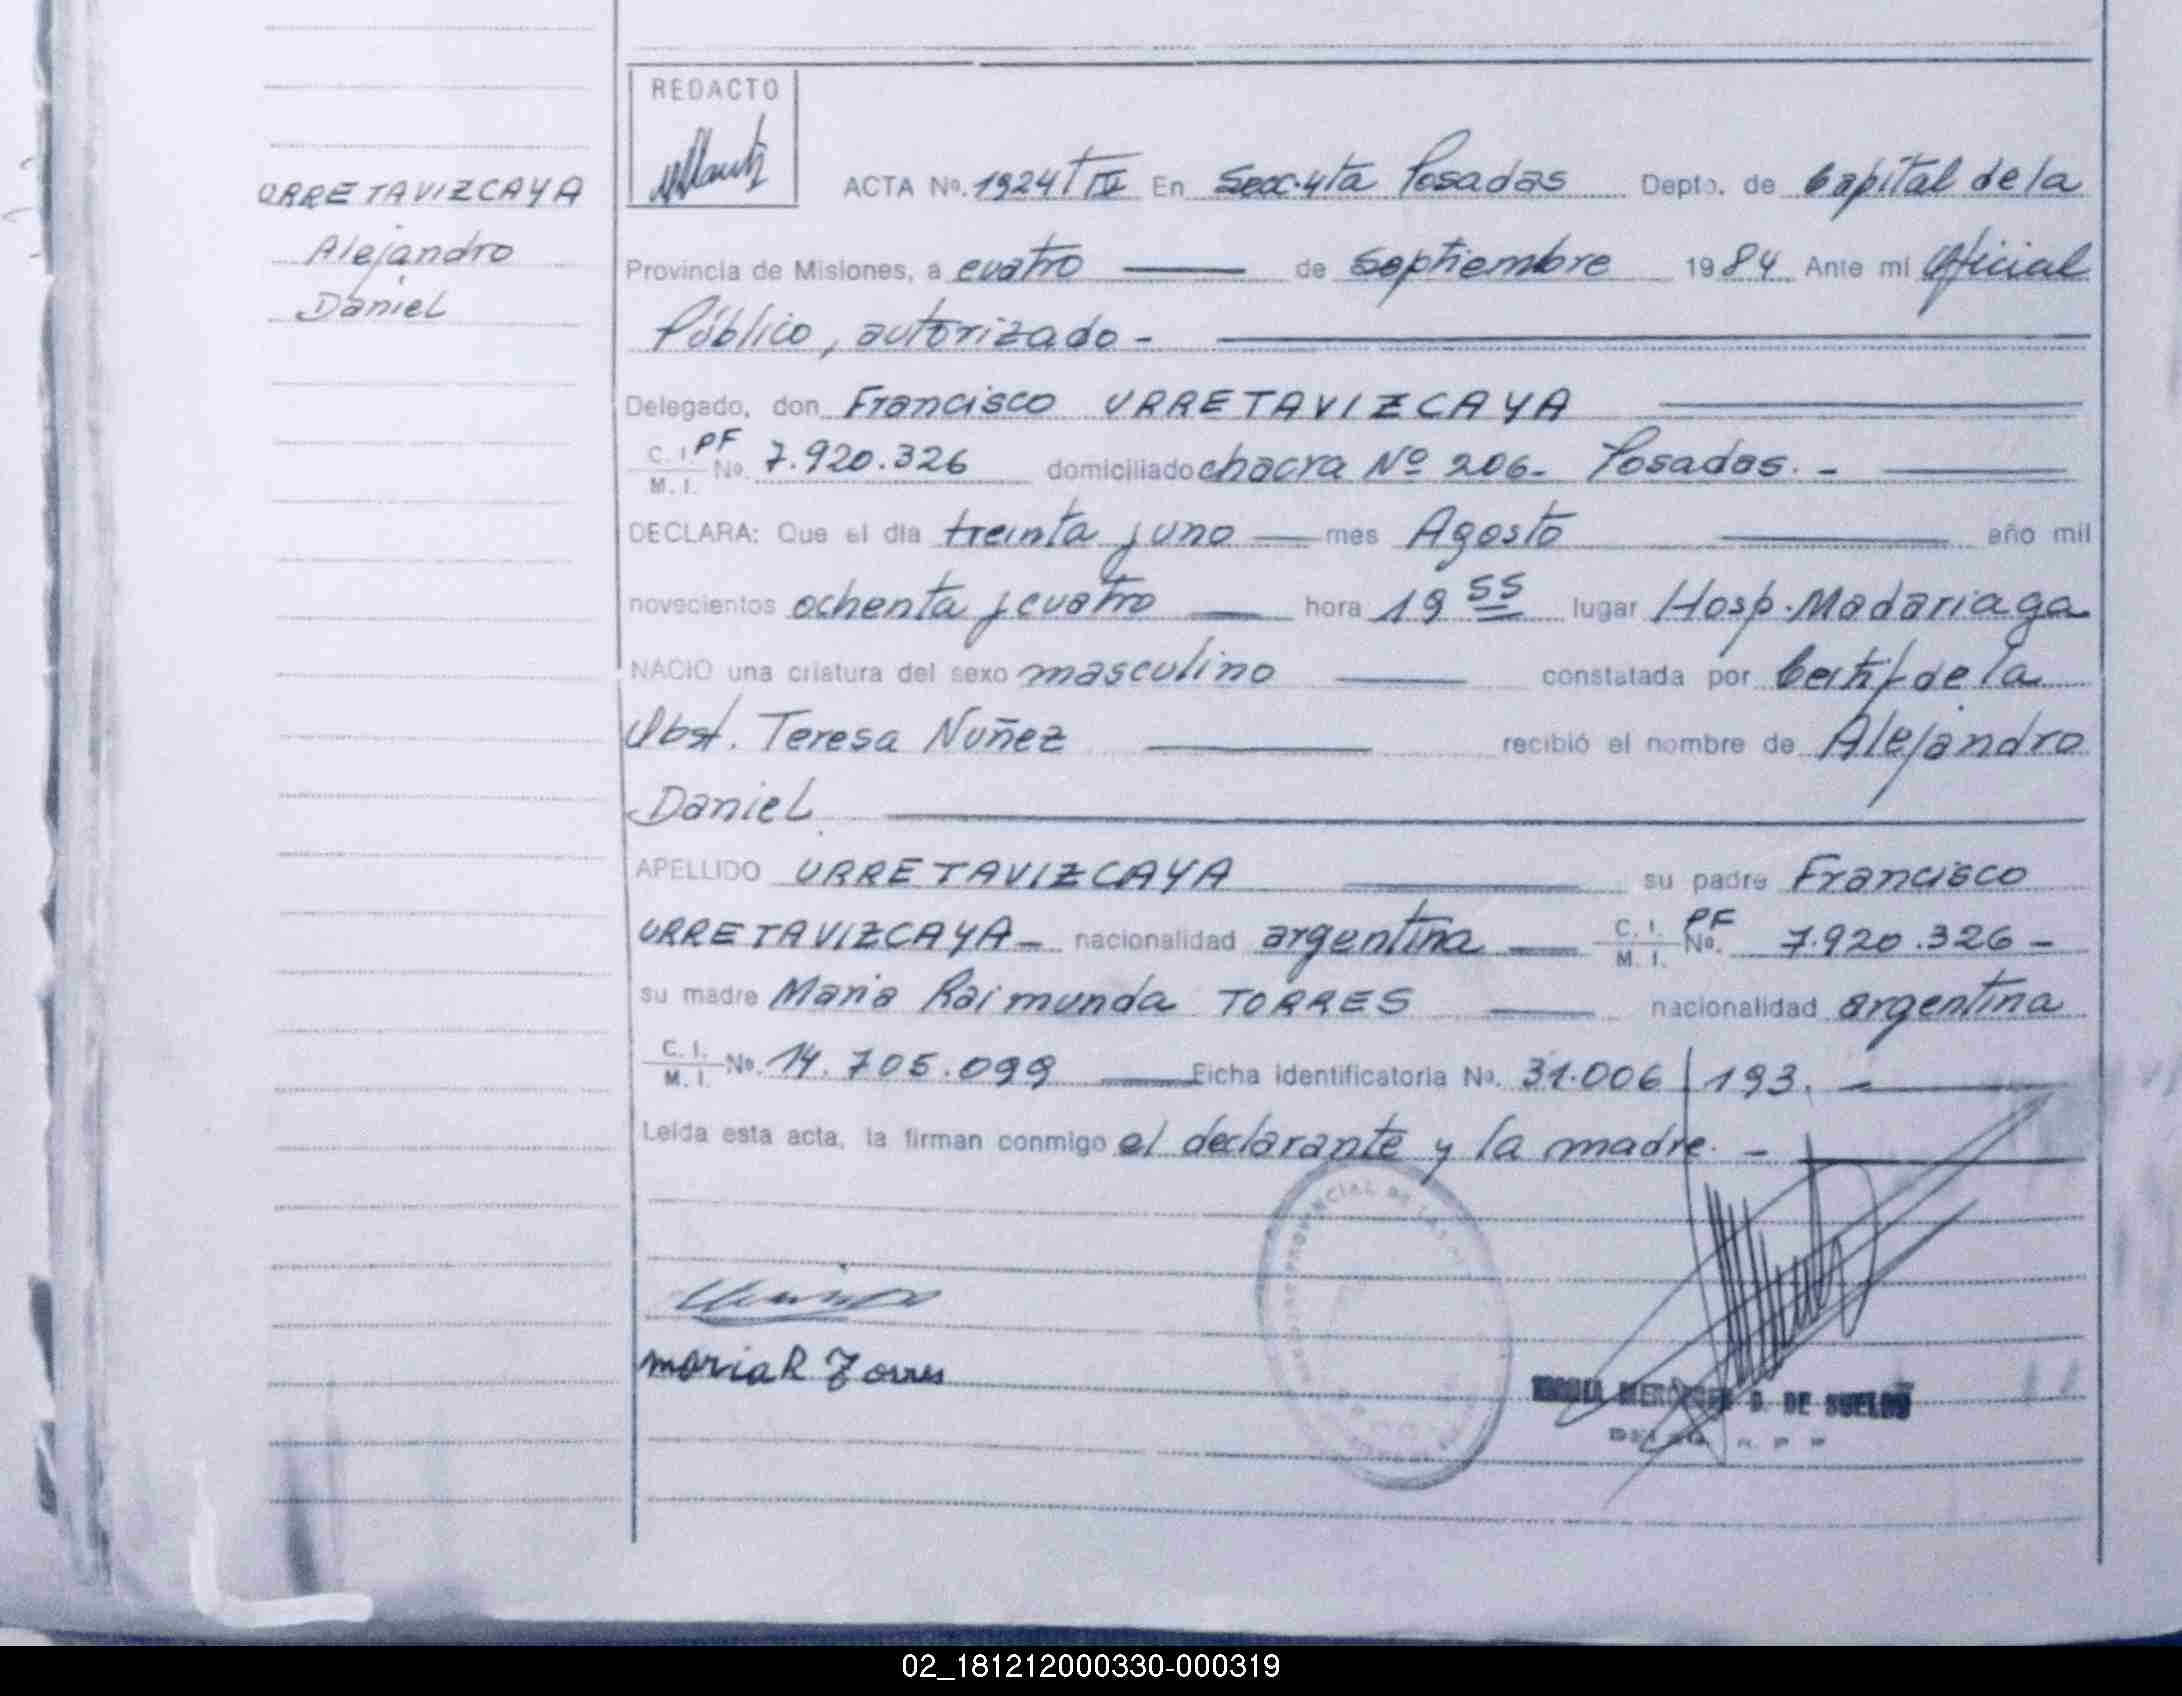 REDACTO
URRETAVIZCAYA
Alejandro
Daniel
ACTA No. 1924 T IV En Secc. 4ta Posadas Depto. de Capital de la
Provincia de Misiones, a cuatro de Septiembre 1984 Ante mi Oficial
Público, autorizado -
Delegado, don Francisco URRETAVIZCAYA
C. I. PF
M. I. No. 7.920.326 domiciliado chacra Nº 206- Posadas. -
DECLARA: Que el día treinta y uno mes Agosto año mil
novecientos ochenta y cuatro hora 19 55 lugar Hosp. Madariaga
NACIO una criatura del sexo masculino constatada por Certif de la
Obst. Teresa Nuñez recibió el nombre de Alejandro
Daniel
APELLIDO URRETAVIZCAYA su padre Francisco
URRETAVIZCAYA - nacionalidad argentina C. I. PF
M. I. No. 7.920.326 -
su madre Maria Raimunda TORRES nacionalidad argentina
C. I.
M. I. No. 14.705.099 Ficha identificatoria No. 31.006/193. -
Leida esta acta, la firman conmigo el declarante y la madre. -
PROVINCIAL DE LAS
maria R Torres
D. DE SUELDO
02_181212000330-000319